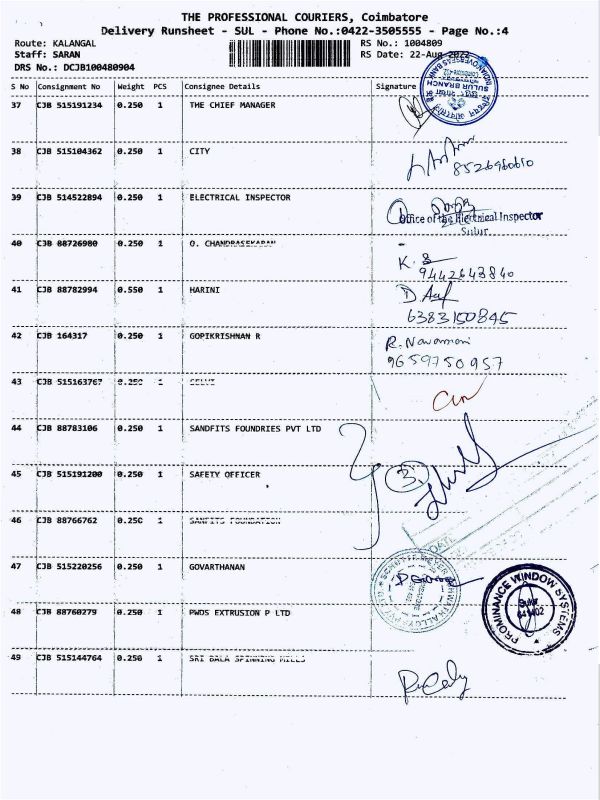 THE PROFESSIONAL COURIERS, Coimbatore
Delivery Runsheet - SUL - Phone No.:0422-3505555 - Page No.:4
Route: KALANGAL RS No.: 1004809
Staff: SARAN RS Date: 22-Aug-2022
DRS No.: DCJB100480904
S No Consignment No Weight PCS Consignee Details Signature
37 CJB 515191234 0.250 1 THE CHIEF MANAGER
SULUR BRANCH
38 CJB 515104362 0.250 1 CITY
8526960610
39 CJB 514522894 0.250 1 ELECTRICAL INSPECTOR
Office of the Electrical Inspector
Sulur
40 CJB 88726980 0.250 1 O. CHANDRASEKARAN
K. S
9442643840
41 CJB 88782994 0.550 1 HARINI
6383150845
42 CJB 164317 0.250 1 GOPIKRISHNAN R
R. Navamani
9659750957
43 CJB 515163767 0.250 1 SELVI
44 CJB 88783106 0.250 1 SANDFITS FOUNDRIES PVT LTD
45 CJB 515191200 0.250 1 SAFETY OFFICER
3
46 CJB 88766762 0.250 1 SANFITS FOUNDATION
47 CJB 515220256 0.250 1 GOVARTHANAN
48 CJB 88760279 0.250 1 PWDS EXTRUSION P LTD
PROMINANCE WINDOW SYSTEMS
49 CJB 515144764 0.250 1 SRI BALA SPINNING MILLS